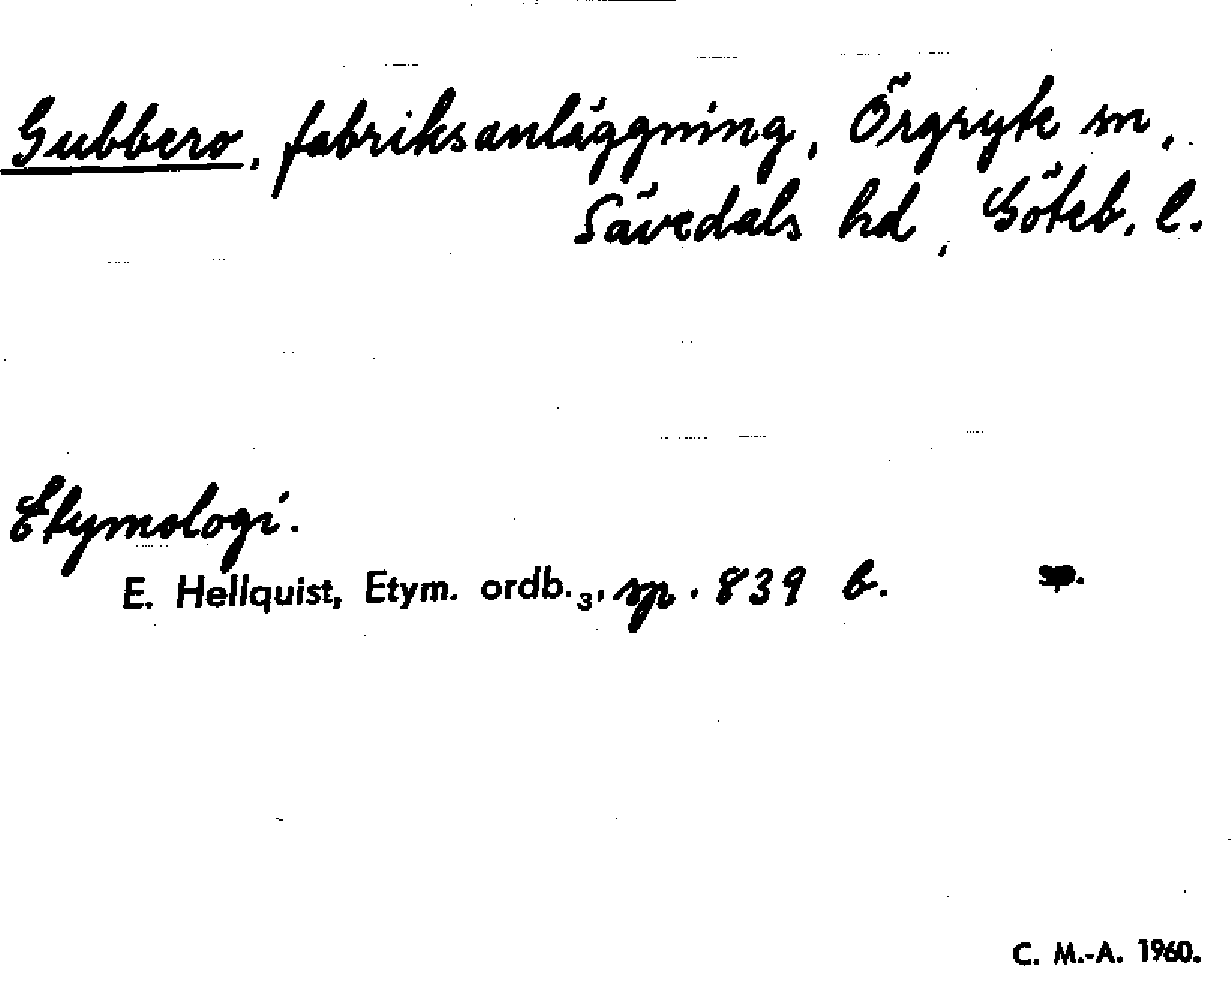 Gubbero, fabriksanläggning, Örgryte sn,
Sävedals hd, Göteb. l.
Etymologi.
E. Hellquist, Etym. ordb.3, sp. 839 b.
C. M.-A. 1960.